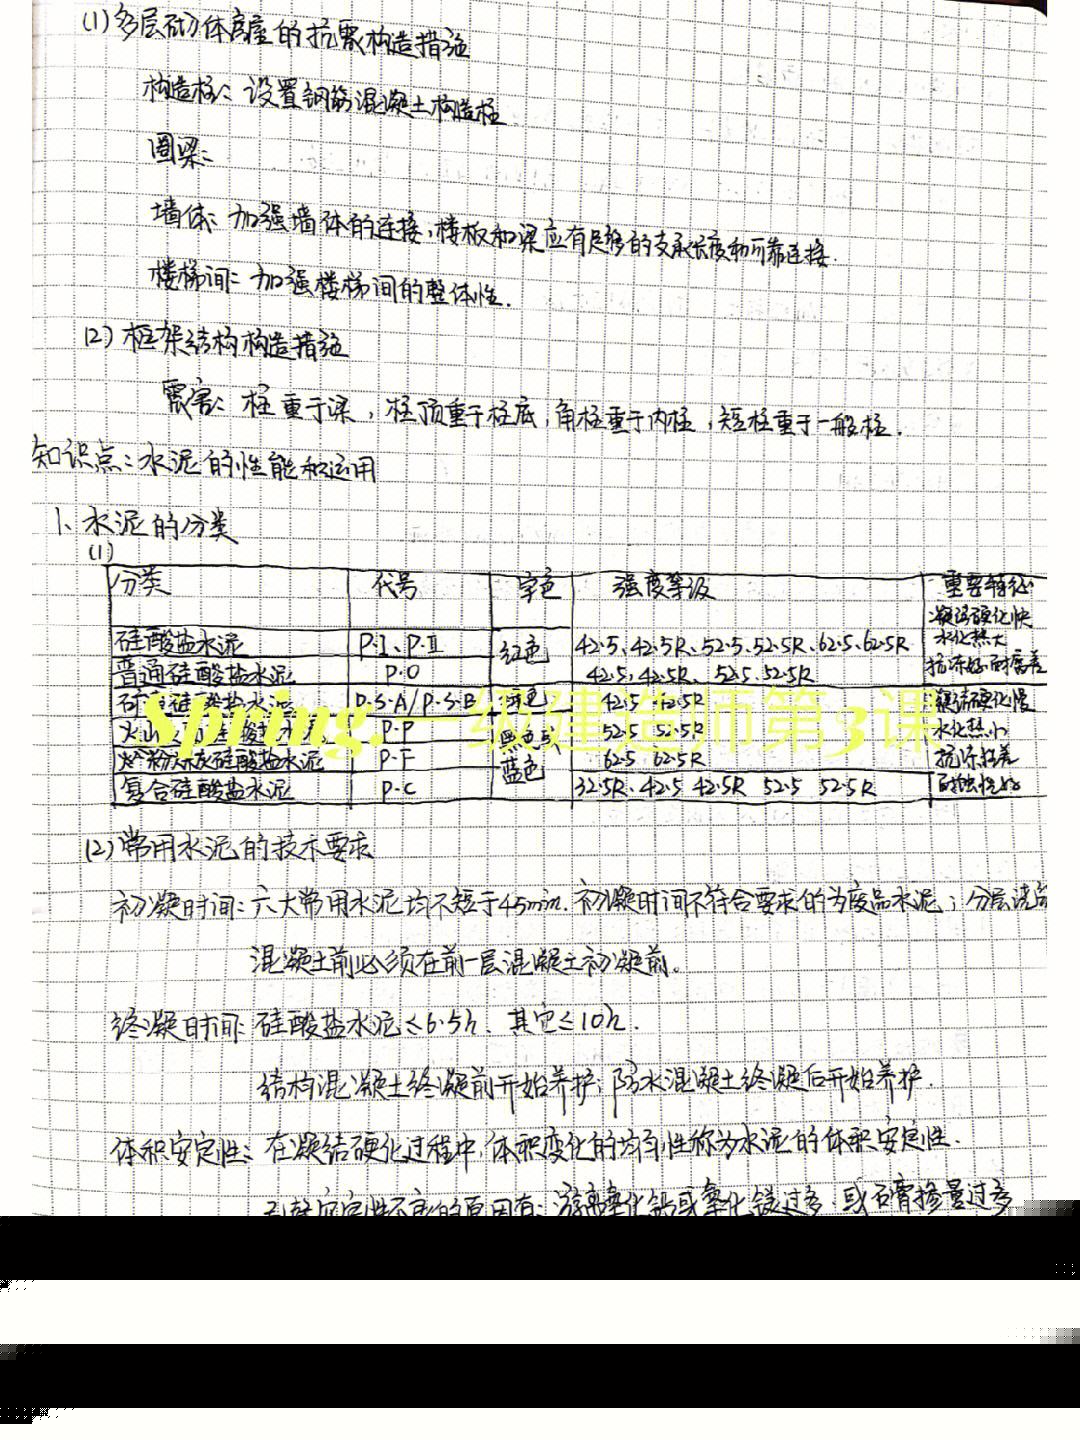 (1)多层砌体房屋的抗震构造措施
构造柱: 设置钢筋混凝土构造柱
圈梁:
墙体: 加强墙体的连接,楼板和梁应有足够的支承长度和可靠连接.
楼梯间: 加强楼梯间的整体性.
(2)框架结构构造措施
震害: 柱重于梁,柱顶重于柱底,角柱重于内柱,短柱重于一般柱.
知识点:水泥的性能和运用
1、水泥的分类
(1)
分类 代号 字色 强度等级 重要特征
硅酸盐水泥 P·I、P·II 红色 42.5、42.5R、52.5、52.5R、62.5、62.5R 凝结硬化快
普通硅酸盐水泥 P·O 42.5、42.5R、52.5、52.5R 水化热大
抗冻好耐腐差
硅酸盐水泥 P·S·A/P·S·B 色 42.5 42.5R 凝结硬化慢
火山 P·P 黑色或 52.5 52.5R 水化热小
粉煤灰硅酸盐水泥 P·F 蓝色 62.5 62.5R 抗冻较差
复合硅酸盐水泥 P·C 32.5R、42.5 42.5R 52.5 52.5R 耐蚀性好
Spring.一级建造师第3课
(2)常用水泥的技术要求
初凝时间: 六大常用水泥均不短于45min.初凝时间不符合要求的为废品水泥;分层浇
混凝土前必须在前一层混凝土初凝前。
终凝时间: 硅酸盐水泥≤6.5h、其它≤10h.
结构混凝土终凝前开始养护;防水混凝土终凝后开始养护.
体积安定性: 在凝结硬化过程中,体积变化的均匀性称为水泥的体积安定性.
安定性不良的原因有:游离氧化钙或氧化镁过多,或石膏掺量过多